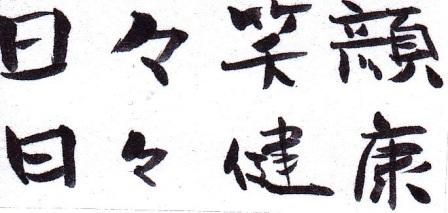 日々笑顔
日々健康